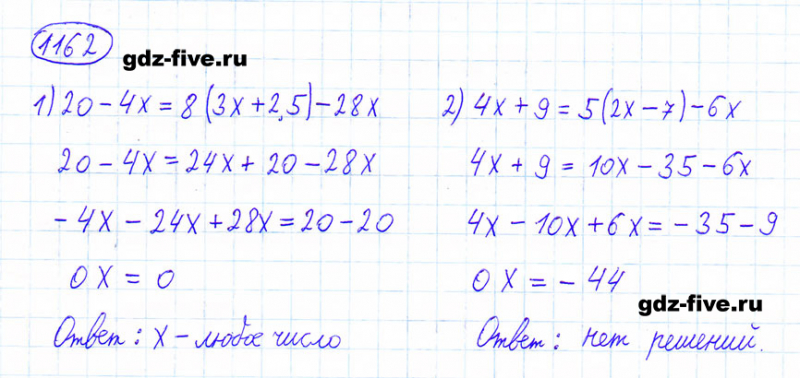 1162
gdz-five.ru
1) 20 - 4x = 8(3x + 2,5) - 28x
20 - 4x = 24x + 20 - 28x
- 4x - 24x + 28x = 20 - 20
0x = 0
Ответ: x - любое число
2) 4x + 9 = 5(2x - 7) - 6x
4x + 9 = 10x - 35 - 6x
4x - 10x + 6x = - 35 - 9
0x = - 44
gdz-five.ru
Ответ: нет решений.